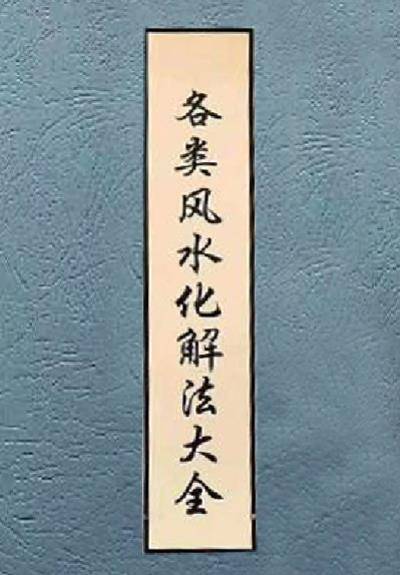 各类风水化解法大全